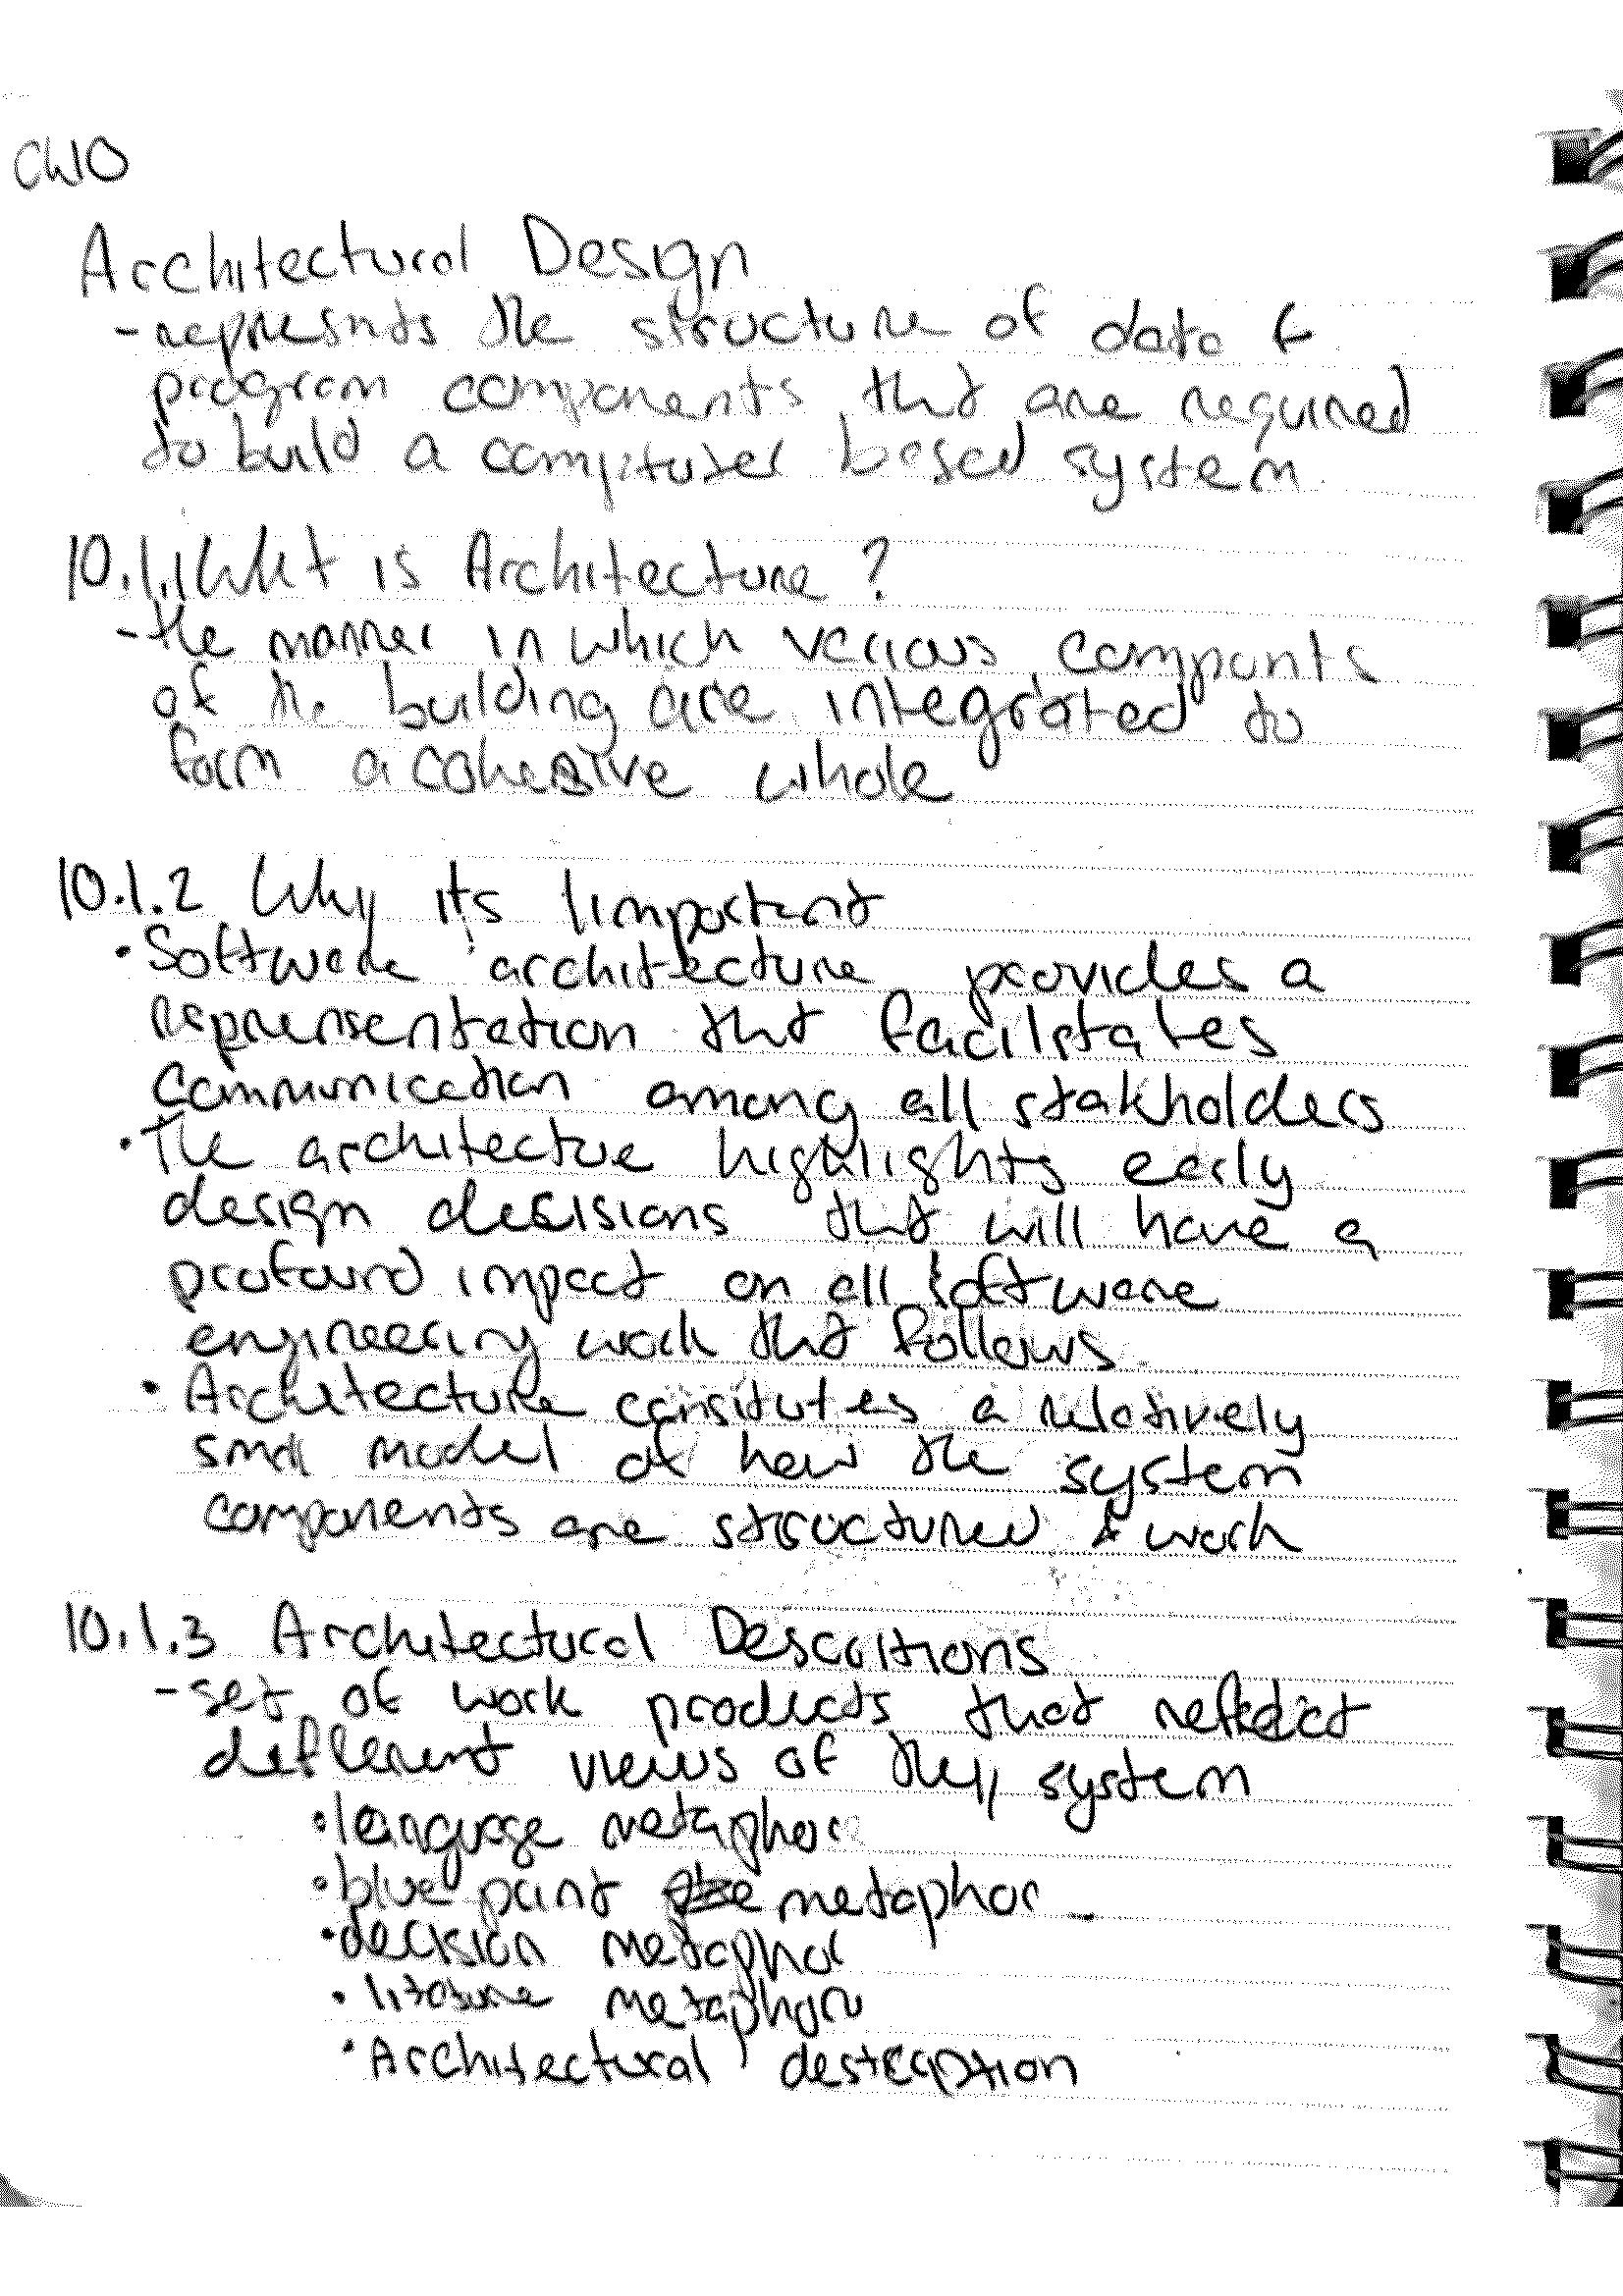 Ch10
Architectural Design
- represnts the structure of data &
program components that are required
to build a computer based system.
10.1.1 What is Architecture?
- the manner in which various componts
of the building are integrated to
form a cohesive whole
10.1.2 Why its Important
• Software architecture provides a
representation that facilitates
communication among all stakholders
• The architectue highlights early
design decisions that will have a
profound impact on all software
engineering work that follows.
• Architecture consitutes a relatively
small model of how the system
components are structured & work
10.1.3 Architectural Descritions
- set of work products that reflect
different views of the system
• language metaphor
• blue print metaphor
• decision metaphor
• litature metaphor
• Architectural description